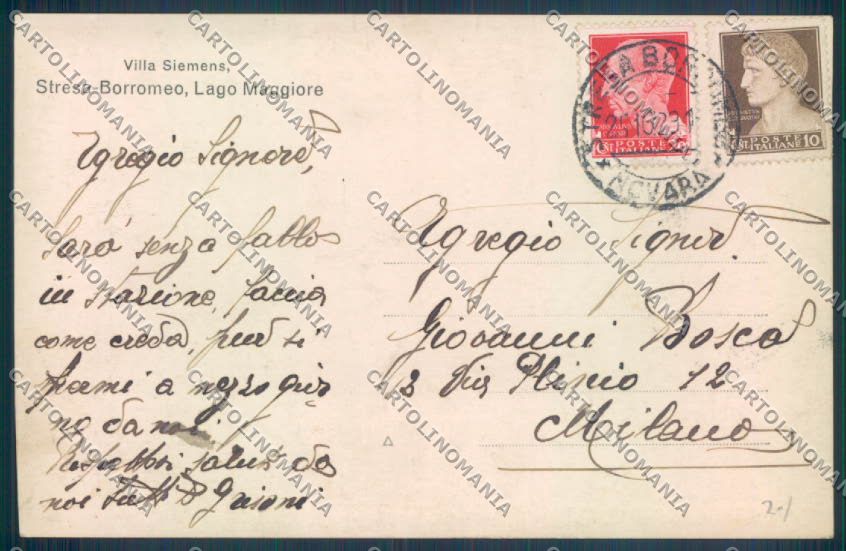 Villa Siemens,
Stresa-Borromeo, Lago Maggiore
Egregio Signore,
Sarà senza fallo
in stazione, faccia
come creda, però si
fermi a mezzo gior
no da noi.
Rispettosi saluti da
noi tutti
NOVARA
CENT. POSTE 20
ITALIANE
CENT. POSTE 10
ITALIANE
Egregio Signor
Giovanni Bosco
Via Plinio 12
Milano
CARTOLINOMANIA